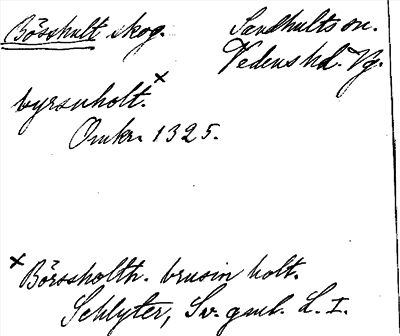 Bösshult skog. Sandhults sn.
Vedens hd. Vg.
byrsnholt.×
Omkr. 1325.
× Börssholth. brusin holt.
Schlyter, Sv. gml. L. I.